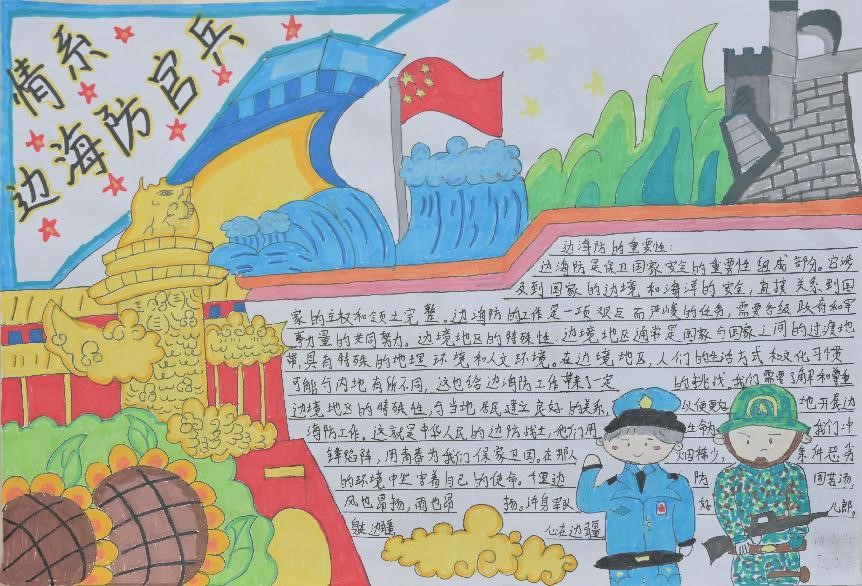 情系
边海防官兵
边海防的重要性:
边海防是保卫国家安全的重要性组成部分。它涉
及到国家的边境和海洋的安全，直接关系到国
家的主权和领土完整。边海防的工作是一项艰巨而严峻的任务，需要各级政府和军
事力量的共同努力。边境地区的特殊性:边境地区通常是国家与国家之间的过渡地
带，具有特殊的地理环境和人文环境。在边境地区，人们的生活方式和文化习惯
可能与内地有所不同，这也给边海防工作带来了一定 的挑战，我们需要了解和尊重
边境地区的特殊性，与当地居民建立良好的关系， 以便更好 地开展边
海防工作。这就是中华人民的边防战士，他们用 生命 我们冲
锋陷阵，用青春为我们保家卫国。在那 烟稀少， 条件恶劣
的环境中坚守着自己的使命。 防 固若汤，
风也昂扬，雨也昂 扬。 好 儿郎。
边疆 心在边疆